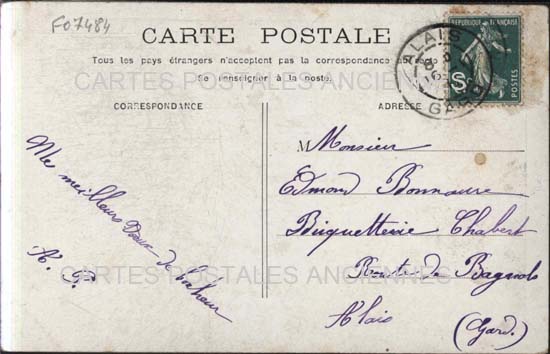 F07484
CARTE POSTALE
Tous les pays étrangers n'acceptent pas la correspondance
Se renseigner à la poste.
RÉPUBLIQUE FRANÇAISE
POSTES
ALAIS
GARD
CARTES POSTALES ANCIENNES
CORRESPONDANCE
ADRESSE
Me meilleurs Vœux de bonheur
A. G.
M Monsieur
Edmond Bonnaure
Briquetterie Chabert
Route de Bagnols
Alais
(Gard).
CARTES POSTALES ANCIENNES